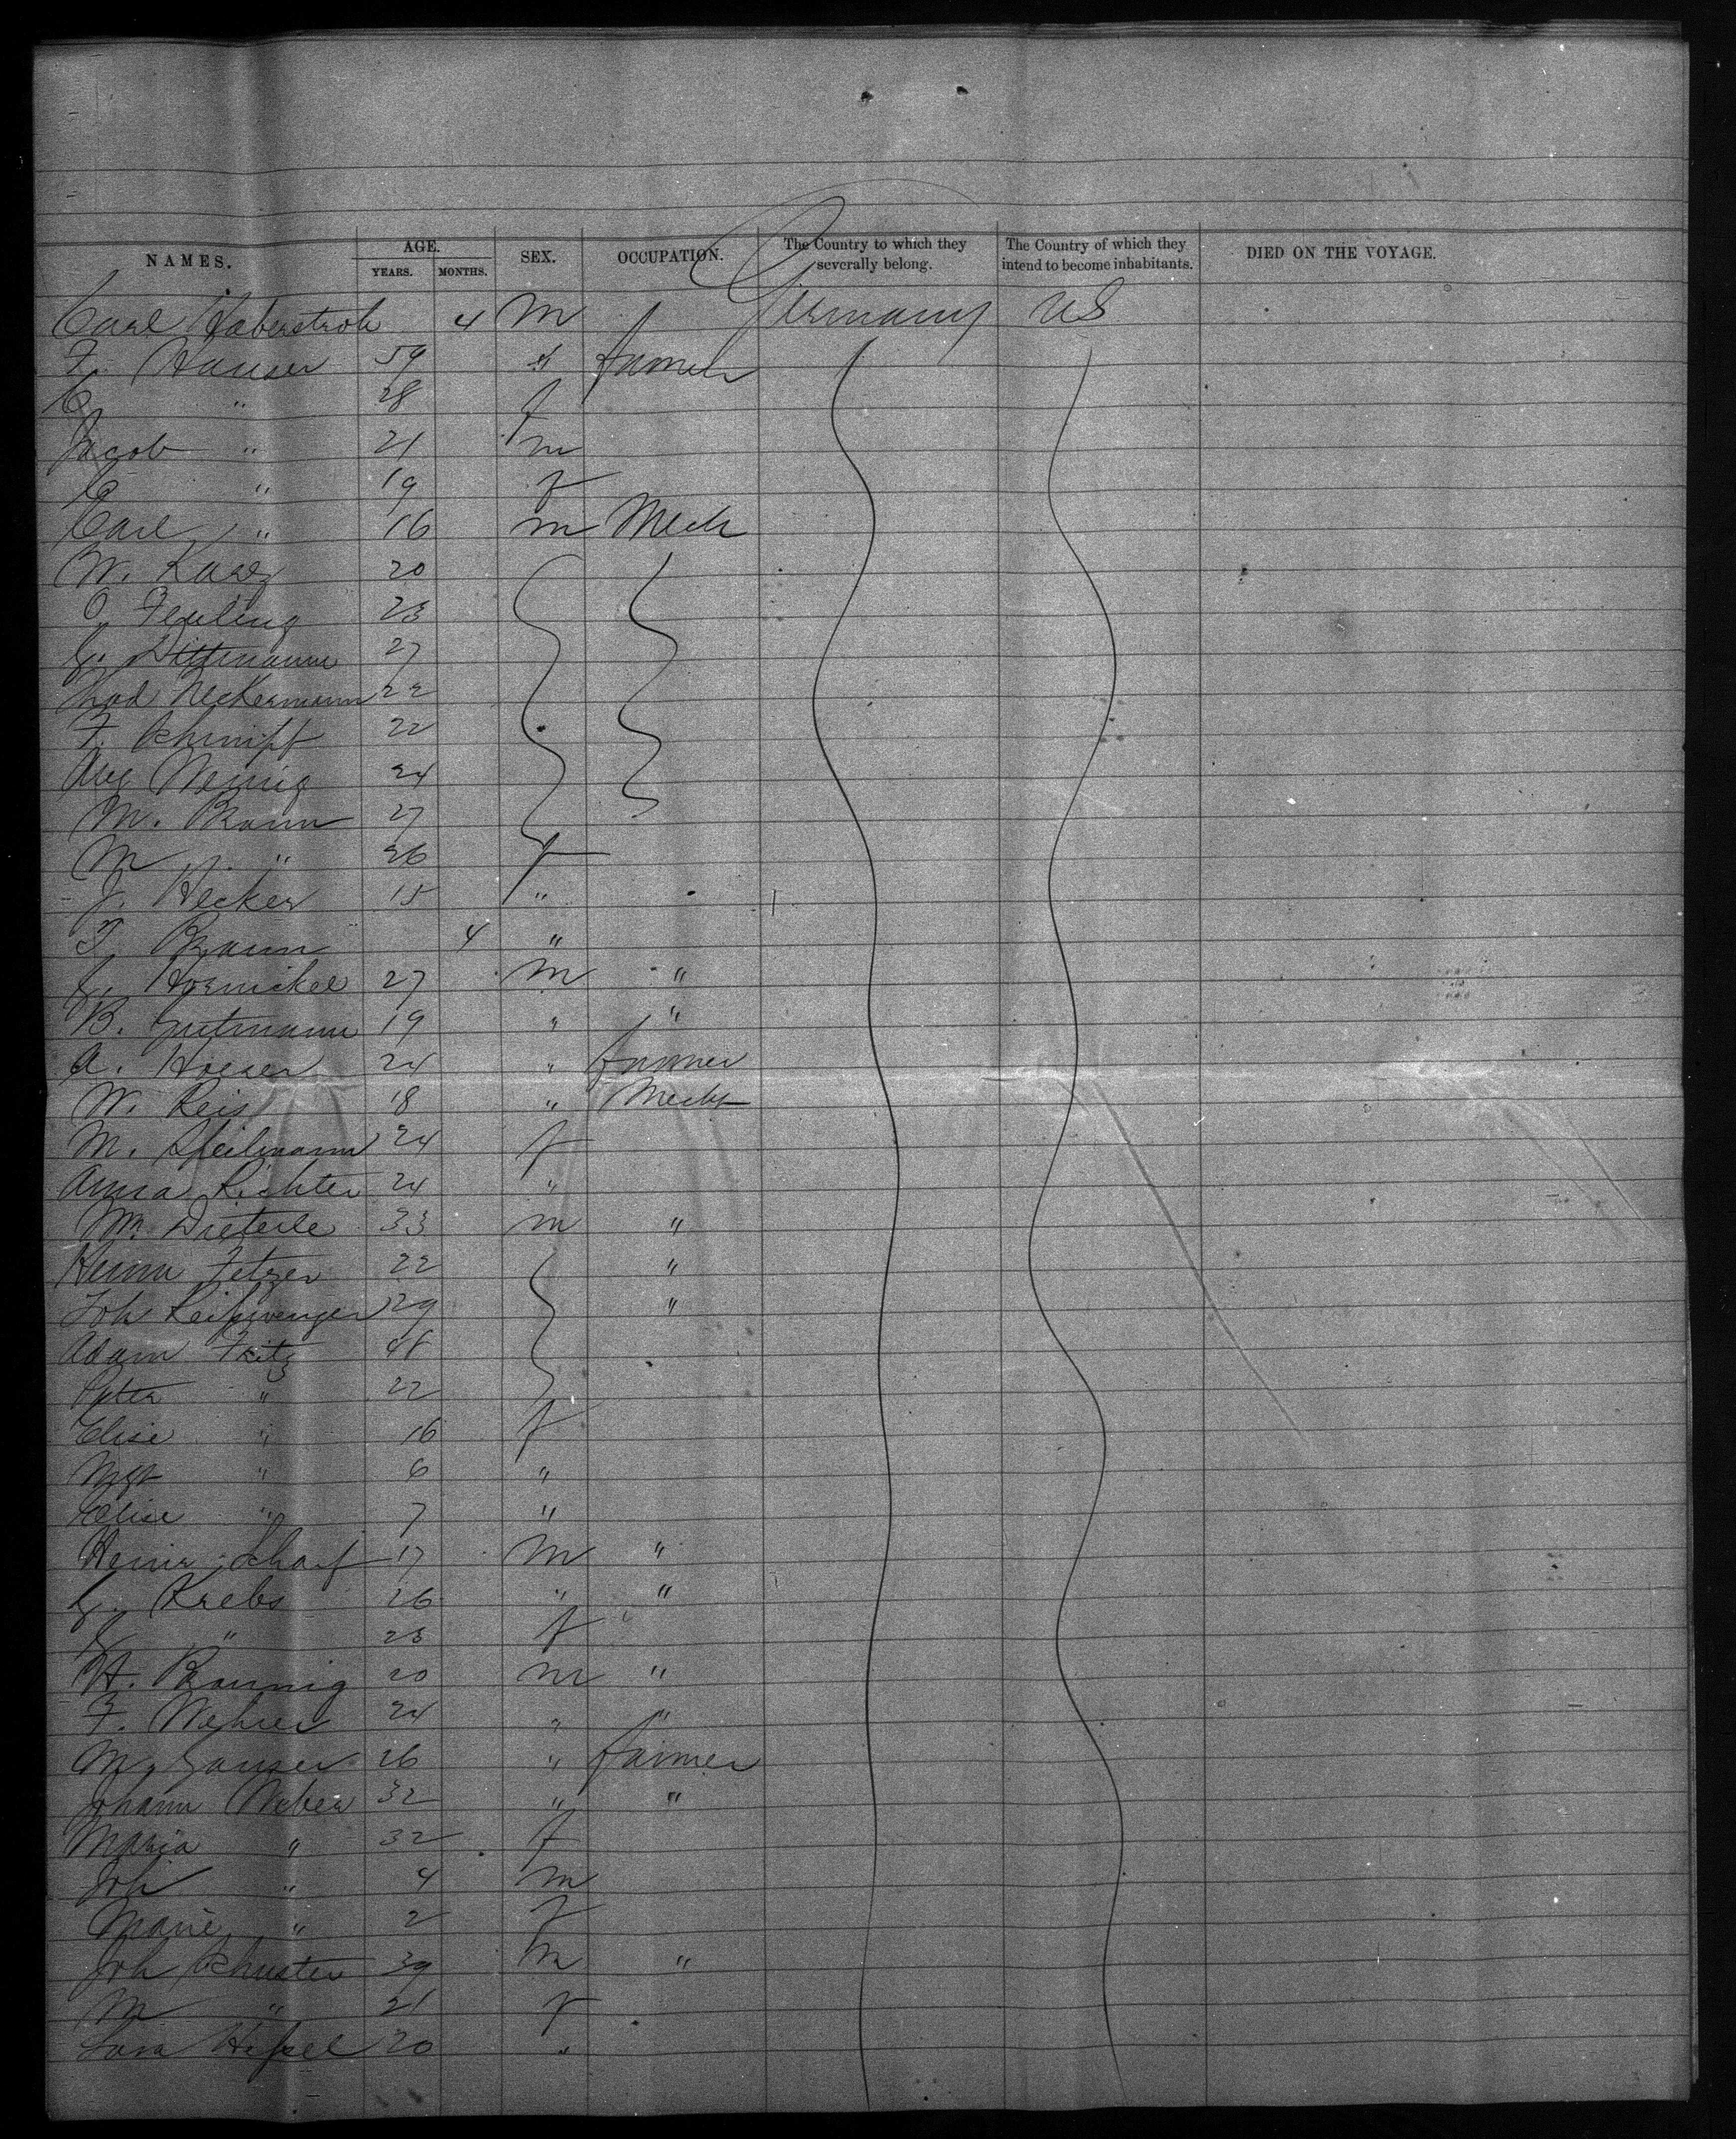 NAMES. AGE. YEARS. MONTHS. SEX. OCCUPATION. The Country to which they severally belong. The Country of which they intend to become inhabitants. DIED ON THE VOYAGE.
Carl Haberstroh 4 M Germany US
F. Hauser 59 " farmer
C " 28 f
Jacob " 21 m
C " 19 f
Carl " 16 m Mech
W. 20
23
G. Dittmann 27
Neckermann 22
F. Schimpf 22
Aug 24
M. Braun 27
M " 26 f
J. Hecker 15 "
T. Braun 4 "
J. Hornickel 27 M "
B. Gutmann 19 " "
A. 24 " farmer
W. Reis 18 " Mech
M. 24 f
Anna Richter 24 "
Wm Dieterle 33 m "
Heinr Fetzer 22 "
Joh 29 "
Adam Fritz 48
Peter " 22
Elise " 16 f
Mgt " 6 "
Elise " 7 "
Heinr Scharf 17 M "
G. Krebs 26 " "
" 23 f
H. 20 m "
F. 24 " "
M. 26 " farmer
Johann Weber 32 " "
Maria " 32 f
Joh " 4 m
Marie " 2 f
Joh Schuster 39 m "
M " 21 f
20 "